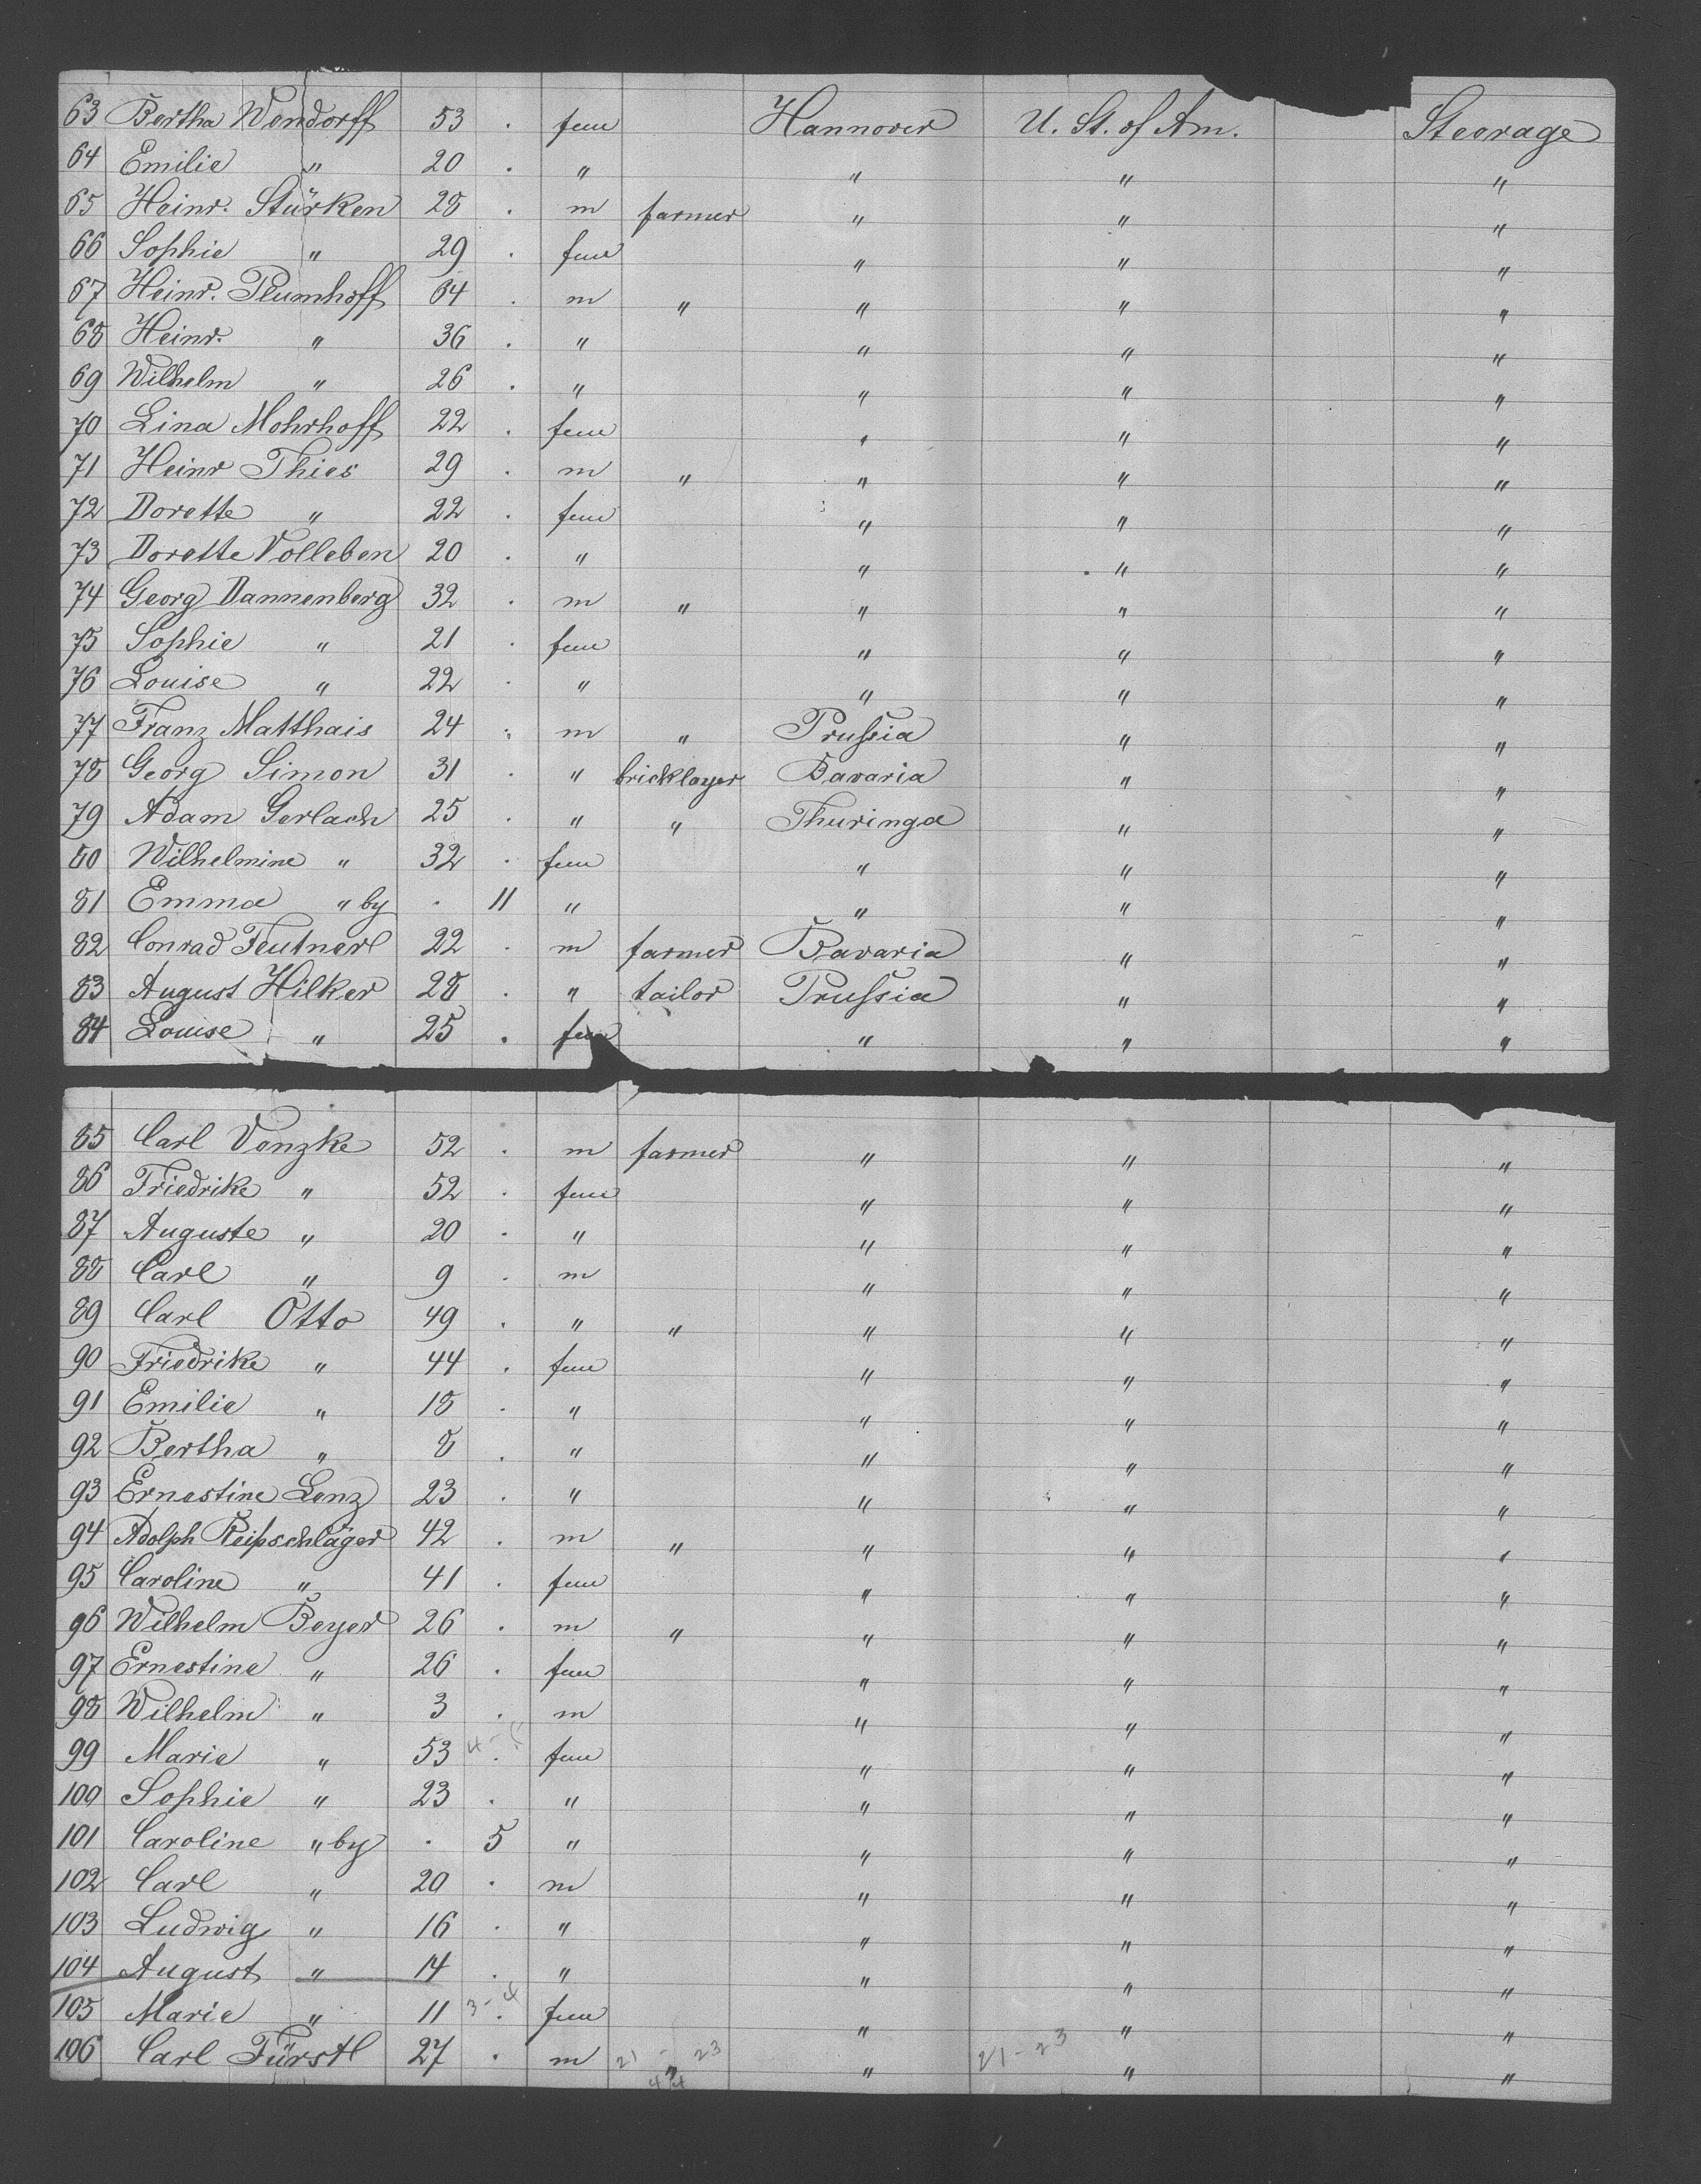 63 Bertha Wendorff 53 . fem Hannover U. St. of Am. Steerage
64 Emilie " 20 . " " " "
65 Heinr. Stürken 28 . m farmer " " "
66 Sophie " 29 . fem " " "
67 Heinr. Plumhoff 64 . m " " " "
68 Heinr. " 36 . " " " "
69 Wilhelm " 26 . " " " "
70 Lina Mohrhoff 22 . fem " " "
71 Heinr Thies 29 . m " " " "
72 Dorette " 22 . fem " " "
73 Dorette Volleben 20 . " " " "
74 Georg Dannenberg 32 . m " " " "
75 Sophie " 21 . fem " " "
76 Louise " 22 . " " " "
77 Franz Matthais 24 . m " Prussia " "
78 Georg Simon 31 . " bricklayer Bavaria " "
79 Adam Gerlach 25 . " " Thuringa " "
80 Wilhelmine " 32 . fem " " "
81 Emma " by . 11 " " " "
82 Conrad Feutnerl 22 . m farmer Bavaria " "
83 August Hilker 28 . " tailor Prussia " "
84 Louise " 25 . fem " " "
85 Carl Venzke 52 . m farmer " " "
86 Friedrike " 52 . fem " " "
87 Auguste " 20 . " " " "
88 Carl " 9 . m " " "
89 Carl Otto 49 . " " " " "
90 Friedrike " 44 . fem " " "
91 Emilie " 18 . " " " "
92 Bertha " 8 . " " " "
93 Ernestine Lenz 23 . " " " "
94 Adolph Reipschläger 42 . m " " " "
95 Caroline " 41 . fem " " "
96 Wilhelm Beyer 26 . m " " " "
97 Ernestine " 26 . fem " " "
98 Wilhelm " 3 . m " " "
99 Marie " 53 . fem " " "
100 Sophie " 23 . " " " "
101 Caroline " by . 5 " " " "
102 Carl " 20 . m " " "
103 Ludwig " 16 . " " " "
104 August " 14 . " " " "
105 Marie " 11 3-4 . fem " " "
106 Carl Fürstl 27 . m 21 - 23 " " 21-23 " "